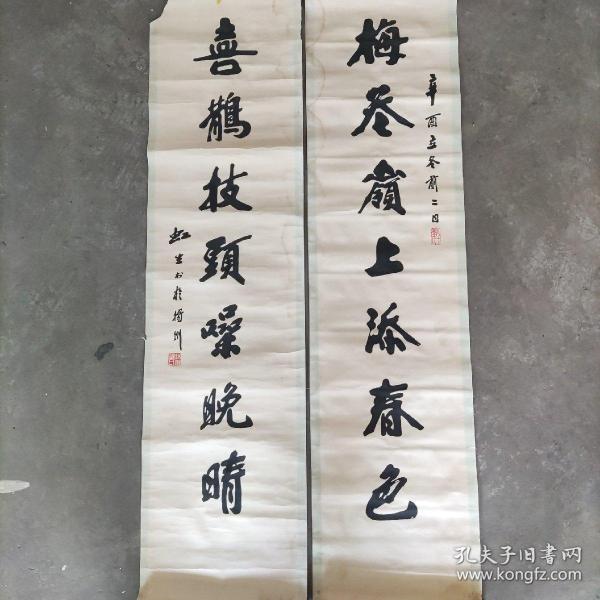 辛酉立冬前二日
梅岺嶺上添春色
喜鵲技頭噪晚晴
虹生书於揚州
孔夫子旧书网
www.kongfz.com